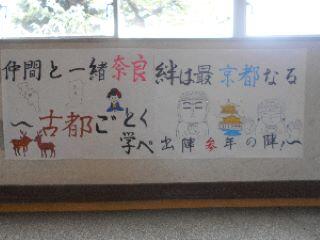 仲間と一緒奈良絆は最京都なる
～古都ごとく学べ出陣参年の陣！～